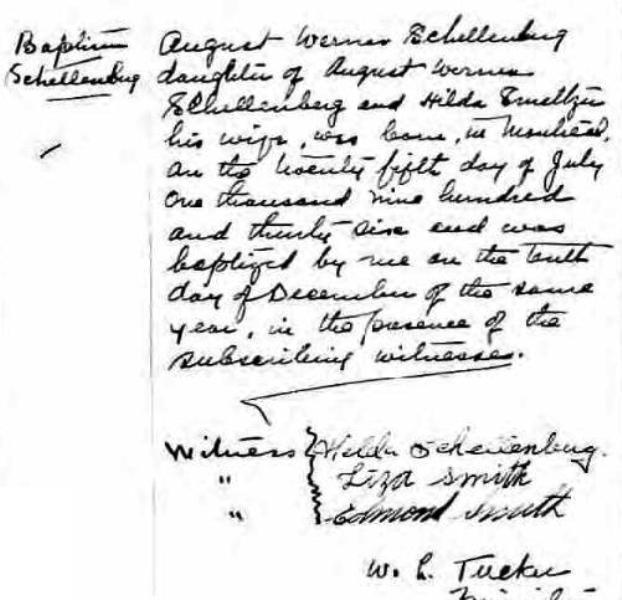 Baptism
Schellenberg
August Werner Schellenberg
daughter of August Werner
Schellenberg and Hilda Smeltzer
his wife, was born, in Montreal,
on the twenty fifth day of July
One thousand nine hundred
and thirty six and was
baptized by me on the tenth
day of December of the same
year, in the presence of the
subscribing witnesses.
Witness Hilda Schellenberg.
" Liza Smith
" Edmond Smith
W. L. Tucker
Minister